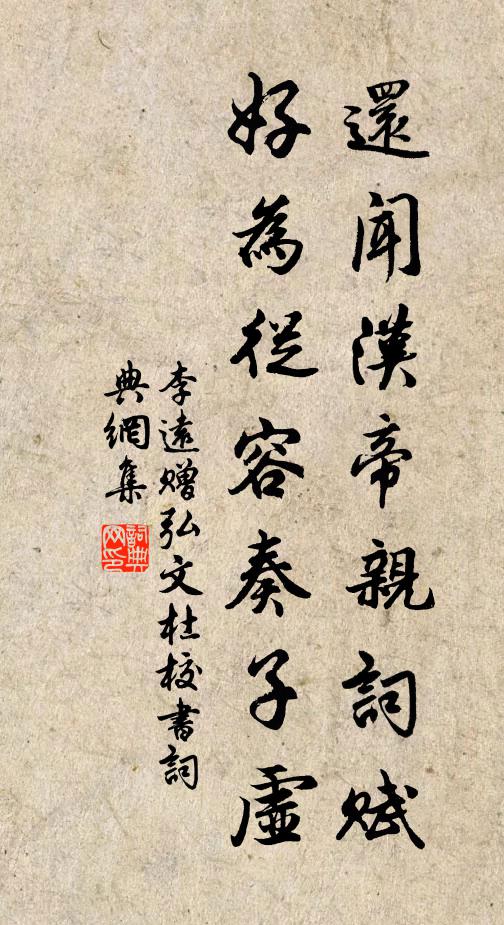 還聞漢帝親詞賦
好為從容奏子虛
李遠贈弘文杜校書詞
典網集
詞典
网印